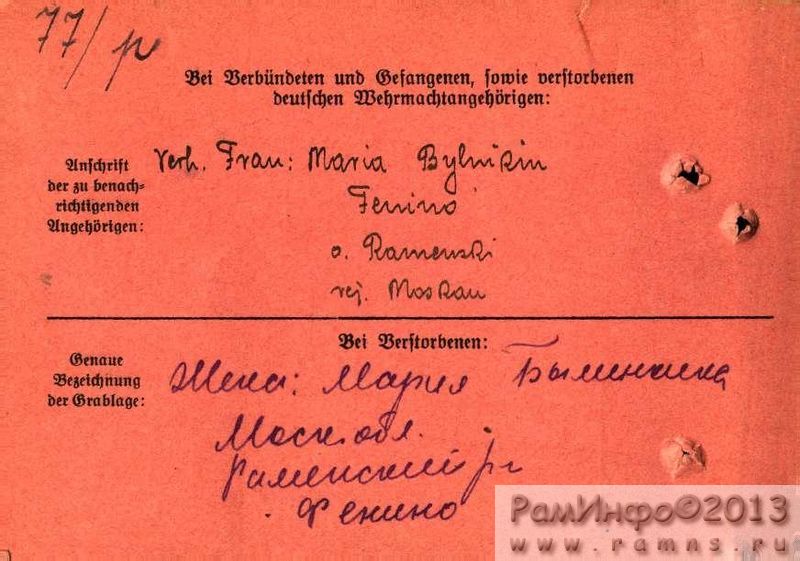 77/р
Bei Verbündeten und Gefangenen, sowie verstorbenen
deutschen Wehrmachtangehörigen:
Anschrift
der zu benach-
richtigenden
Angehörigen:
Verh. Frau: Maria Bylnikin
Fenino
o. Ramenski
rej. Moskau
Bei Verstorbenen:
Genaue
Bezeichnung
der Grablage:
Жена: Мария
Моск. обл.
Раменский р-н
Фенино
РамИнфо©2013
www.ramns.ru